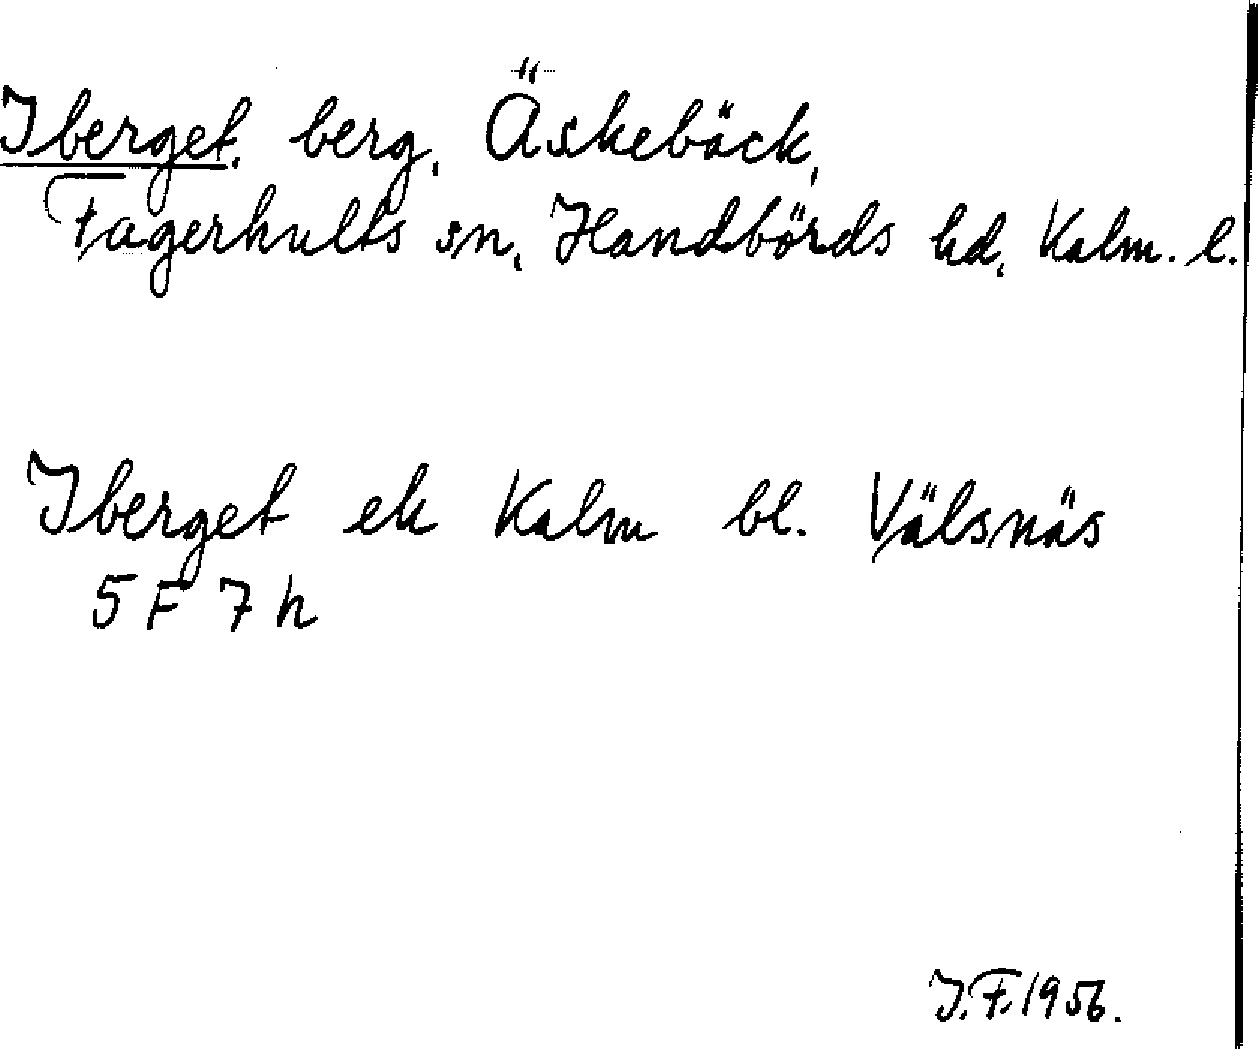 Iberget, berg, Äskebäck,
Fagerhults sn, Handbörds hd, Kalm. l.
Iberget ek Kalm bl. Välsnäs
5 F 7 h
I.F. 1956.